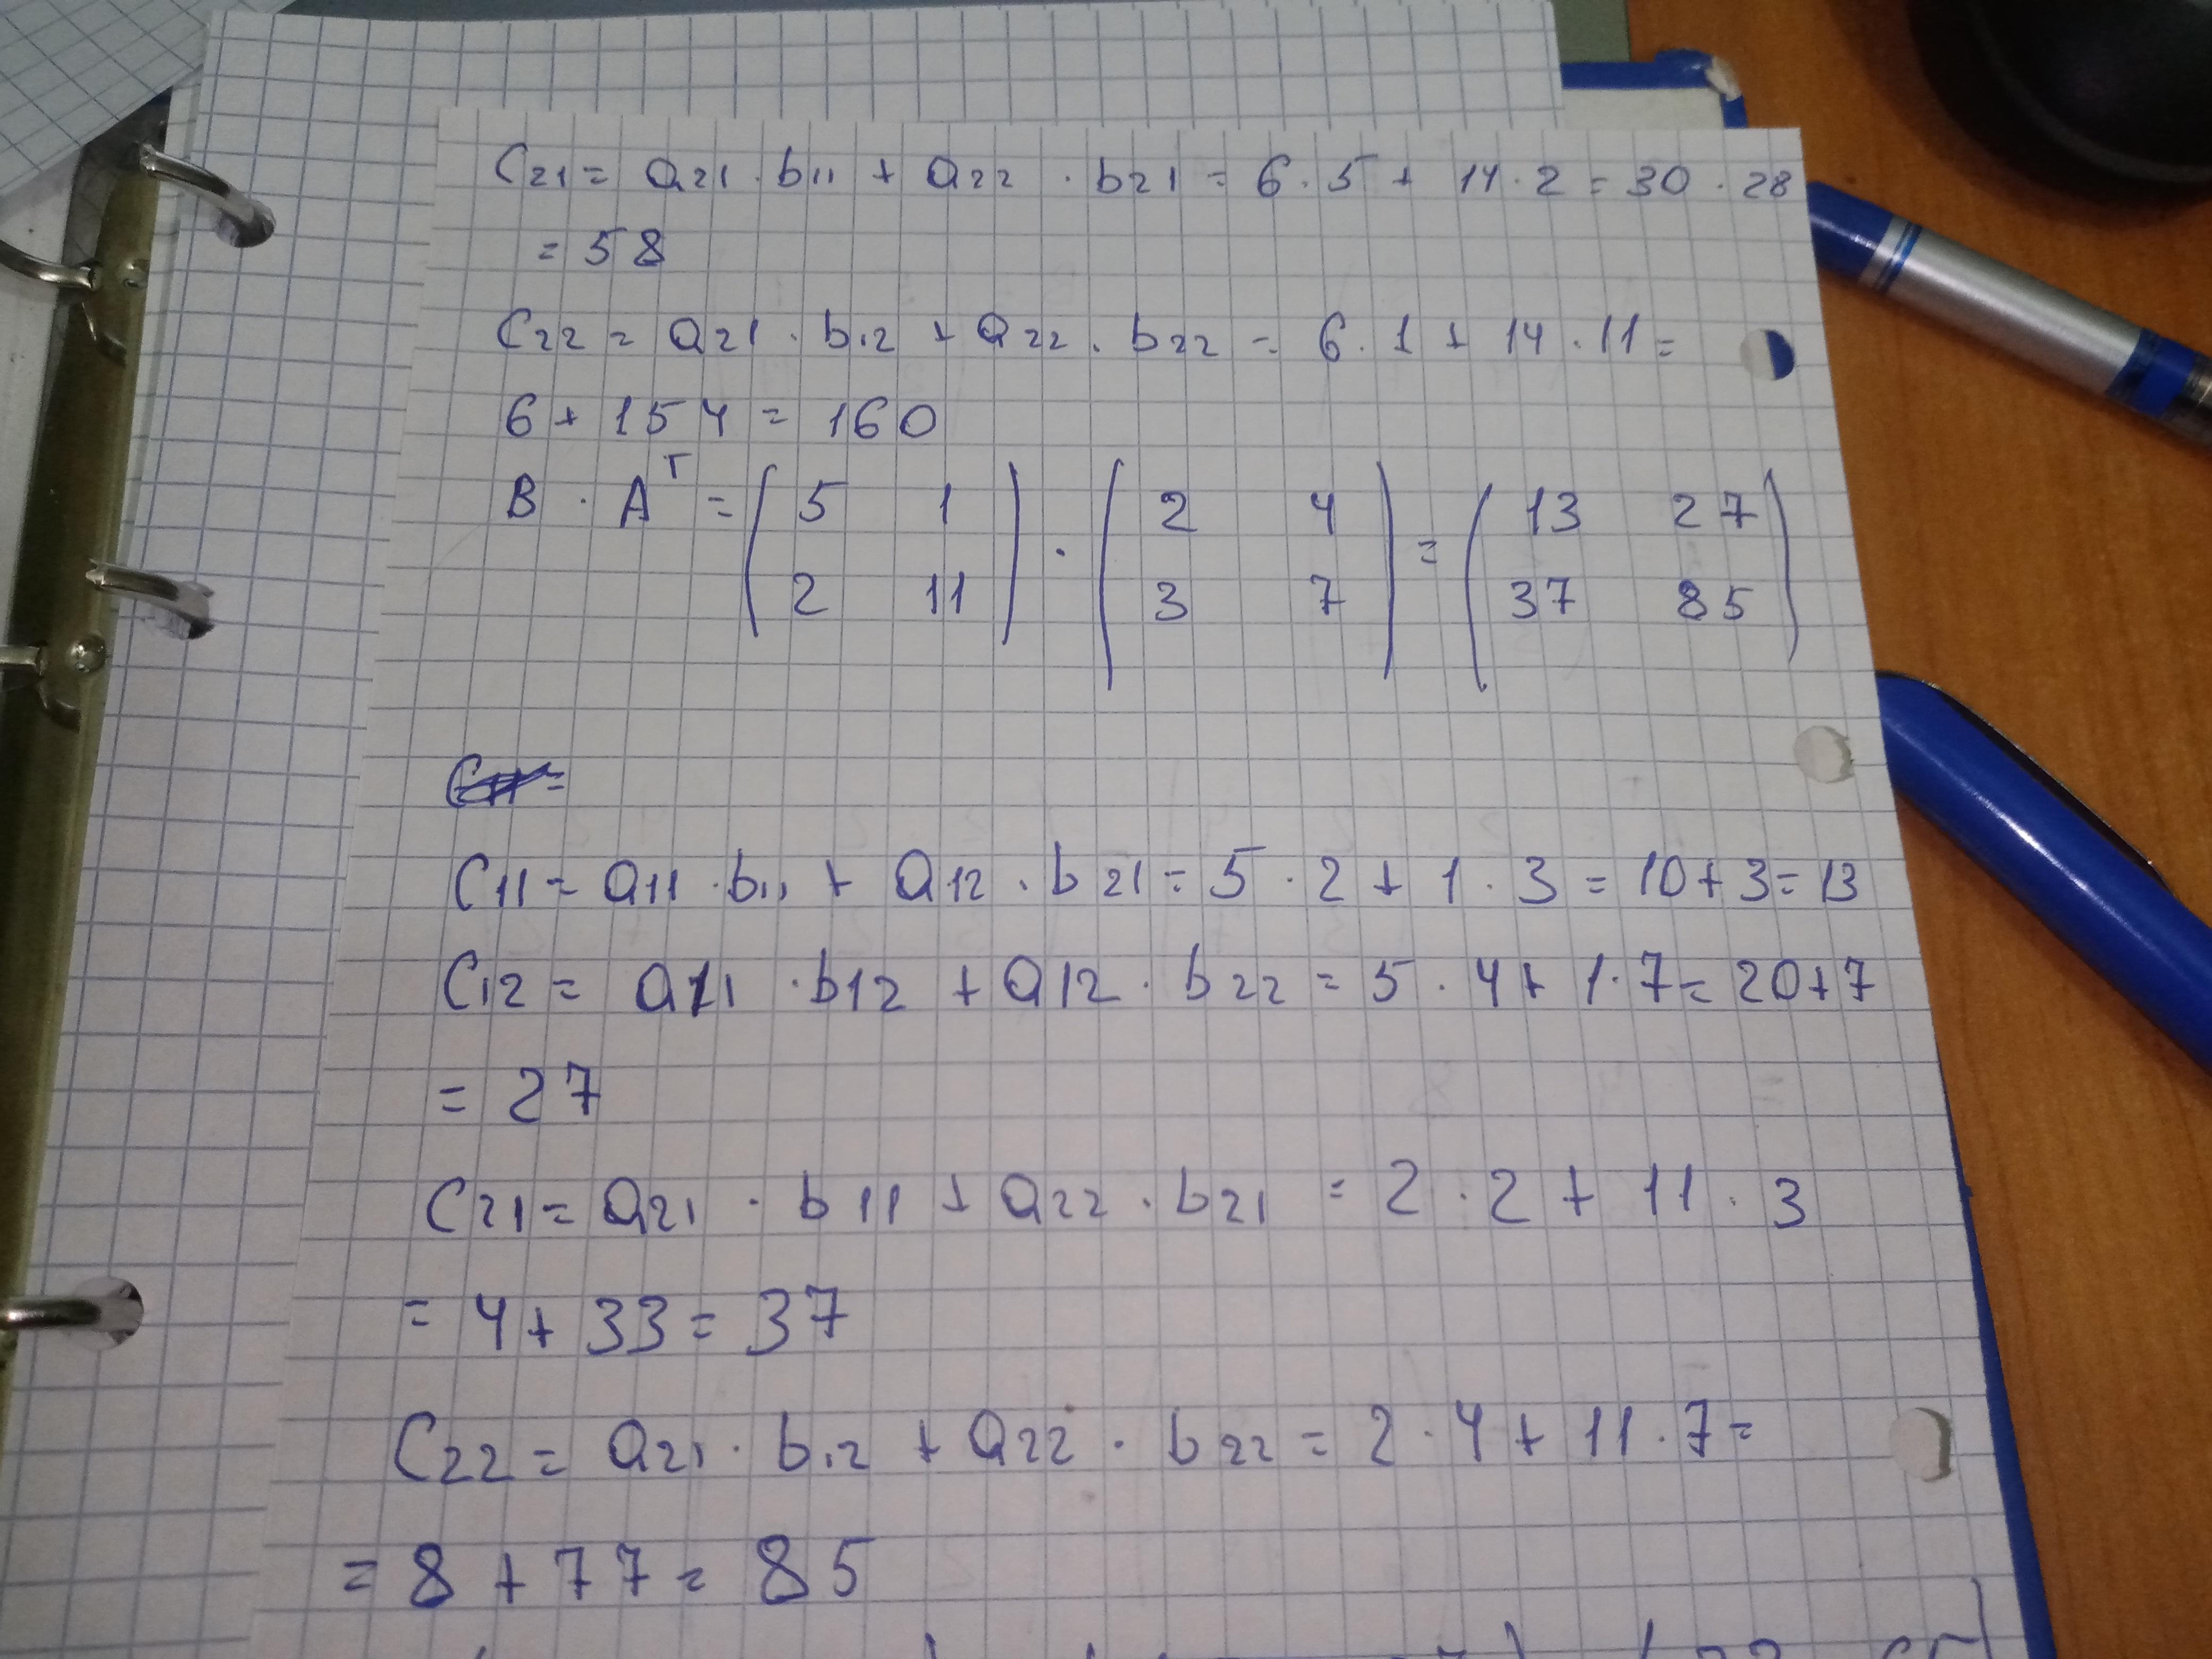 C21 = a21 · b11 + a22 · b21 = 6 · 5 + 14 · 2 = 30 · 28
= 58
C22 = a21 · b12 + a22 · b22 = 6 · 1 + 14 · 11 =
6 + 154 = 160
B · A^T = ( 5 1 ) · ( 2 4 ) = ( 13 27 )
( 2 11 ) ( 3 7 ) ( 37 85 )
C11 = a11 · b11 + a12 · b21 = 5 · 2 + 1 · 3 = 10 + 3 = 13
C12 = a11 · b12 + a12 · b22 = 5 · 4 + 1 · 7 = 20 + 7
= 27
C21 = a21 · b11 + a22 · b21 = 2 · 2 + 11 · 3
= 4 + 33 = 37
C22 = a21 · b12 + a22 · b22 = 2 · 4 + 11 · 7 =
= 8 + 77 = 85